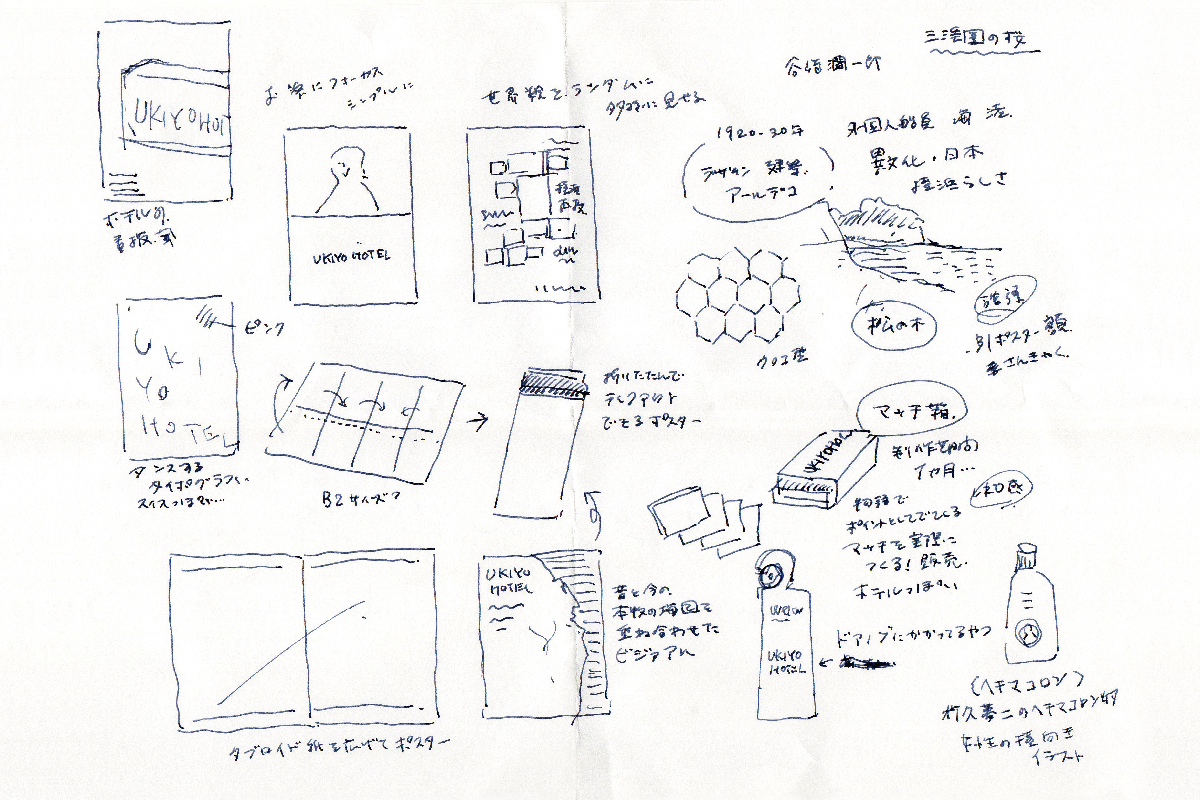 UKIYOHOT
ホテルの
看板風
お菊にフォーカス
シンプルに
UKIYO HOTEL
世界観を、ランダムに
多様に見せる
横浜
再發
三渓園の桜
谷崎潤一郎
1920-30年
デザイン 建築.
アールデコ
外国人船員 海 港.
異文化・日本
横浜らしさ
松の木
クロコ型
-引ポスター 額.
ピンク
UKI
YO
HOTEL
ダンスする
タイポグラフィ
スイスっぽさで…
B2サイズ?
折りたたんで
テイクアウト
できるポスター
マッチ箱.
UKIYOHOTEL
制作期間
1ヶ月…
物語で
ポイントとしてでてくる
マッチを実際に
つくる! 販売.
ホテルっぽい
タブロイド紙を広げてポスター
UKIYO
HOTEL
昔と今の.
本牧の海図を
重ね合わせた
ビジュアル
UKIYO
HOTEL
ドアノブにかかってるやつ
(ヘチマコロン)
竹久夢二のヘチマコロン的
女性の横向き
イラスト